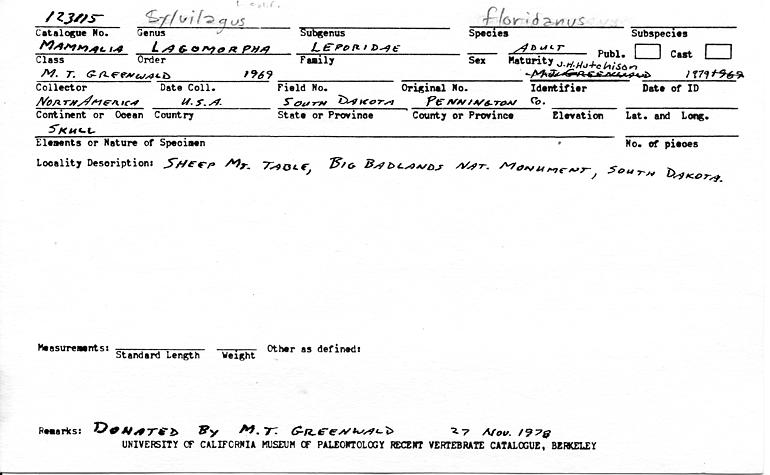 123115 Sylvilagus floridanus
Catalogue No. Genus Subgenus Species Subspecies
MAMMALIA LAGOMORPHA LEPORIDAE ADULT Publ. Cast
Class Order Family Sex Maturity J.H. Hutchison
M. T. GREENWALD 1969 M.T. GREENWALD 1979 1969
Collector Date Coll. Field No. Original No. Identifier Date of ID
NORTH AMERICA U.S.A. SOUTH DAKOTA PENNINGTON CO.
Continent or Ocean Country State or Province County or Province Elevation Lat. and Long.
SKULL
Elements or Nature of Specimen No. of pieces
Locality Description: SHEEP MT. TABLE, BIG BADLANDS NAT. MONUMENT, SOUTH DAKOTA.
Measurements: Other as defined:
Standard Length Weight
Remarks: DONATED BY M.T. GREENWALD 27 NOV. 1978
UNIVERSITY OF CALIFORNIA MUSEUM OF PALEONTOLOGY RECENT VERTEBRATE CATALOGUE, BERKELEY